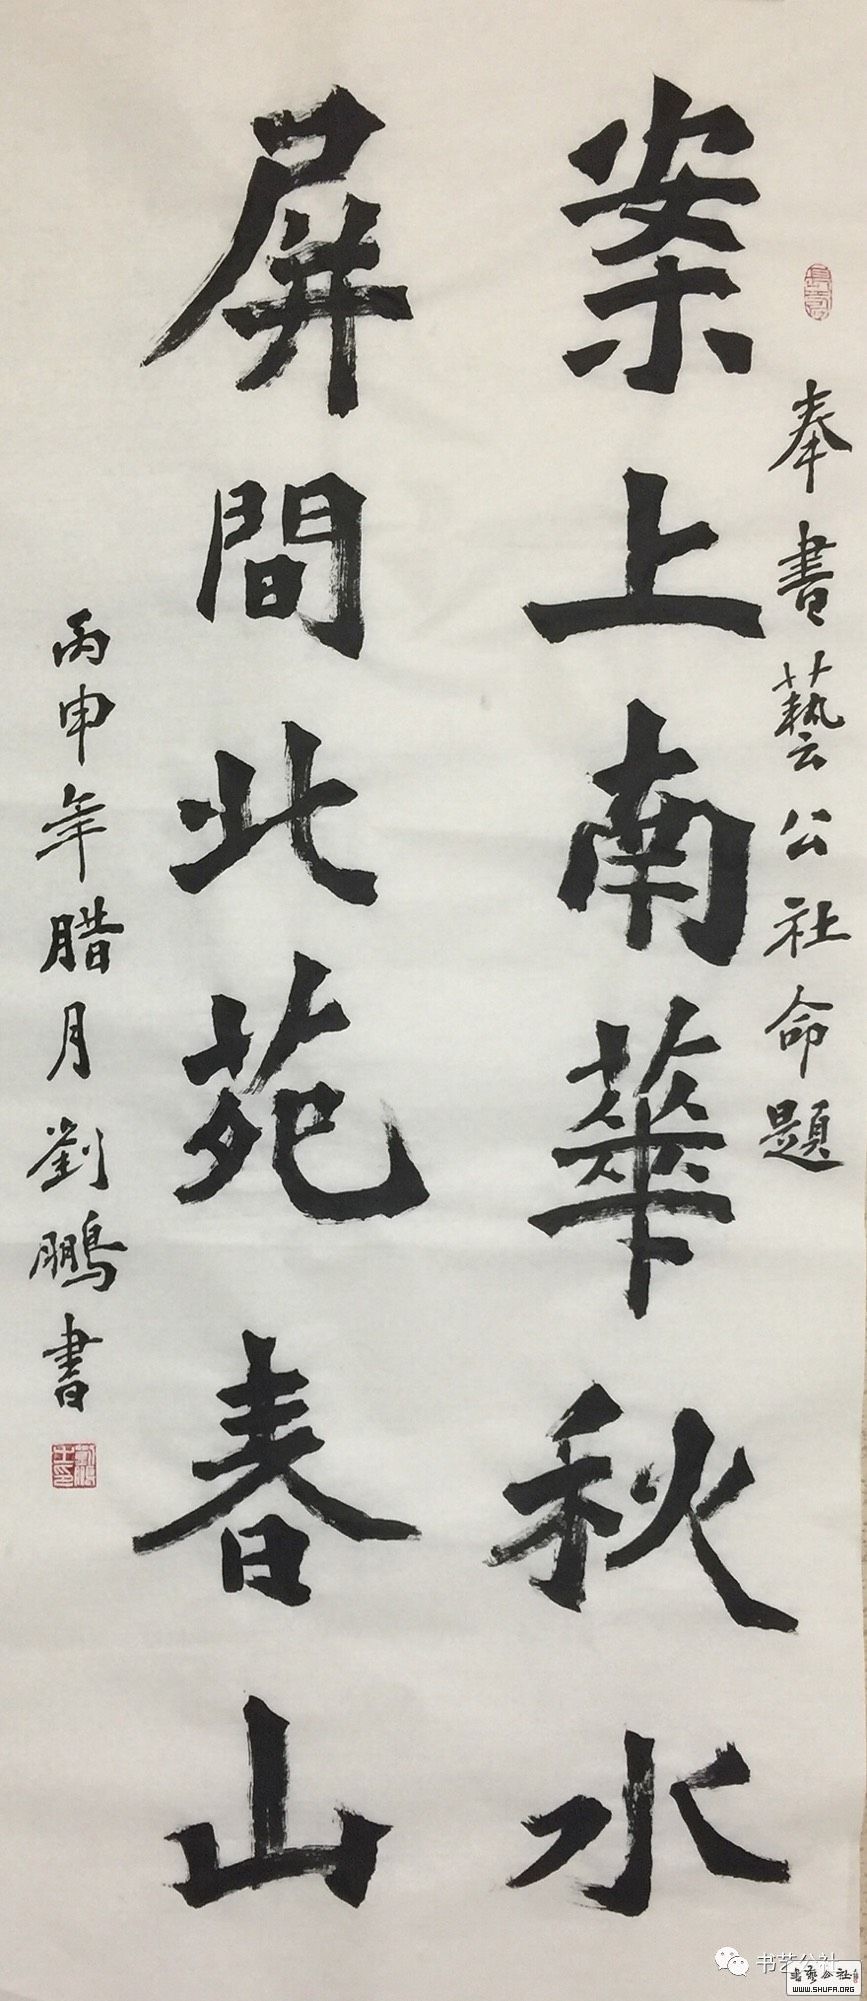 奉書藝公社命題
案上南華秋水
屏間北苑春山
丙申年腊月劉鵬書
书艺公社
書藝公社
WWW.SHUFA.ORG